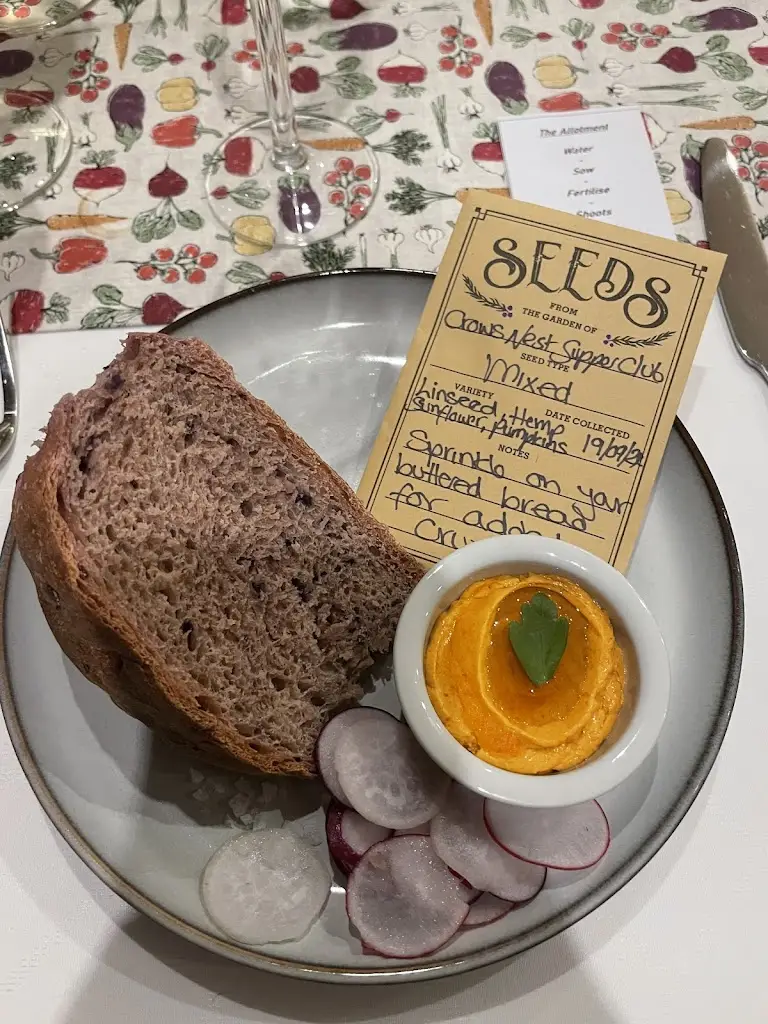 The Allotment
Water
-
Sow
-
Fertilise
-
Shoots
SEEDS
FROM
THE GARDEN OF
Crows Nest Supper Club
SEED TYPE
Mixed
VARIETY
DATE COLLECTED
Linseed, Hemp
Sunflower, pumpkins
19/09/
NOTES
Sprinkle on your
buttered bread
for